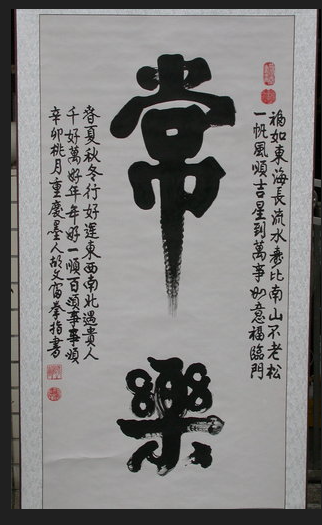 福如東海長流水壽比南山不老松
一帆風順吉星到萬事如意福臨門
常樂
春夏秋冬行好運東西南北遇貴人
千好萬好年年好一順百順事事順
辛卯桃月重慶墨人胡文富拳指書